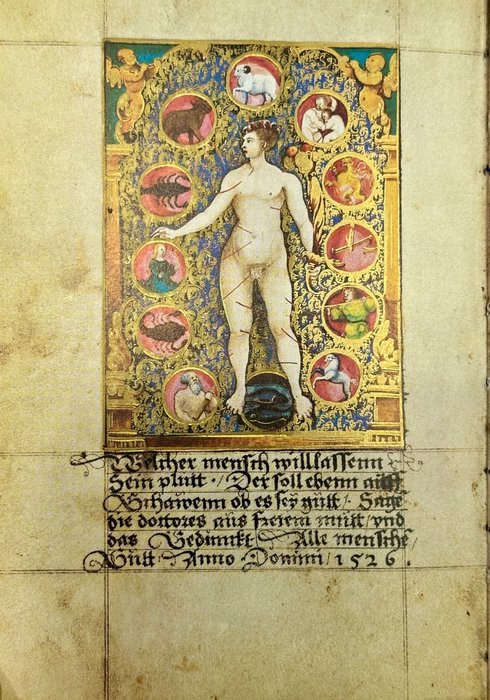 Welcher mensch will lassenn
Sein plutt ·/ Der soll ebenn auff
Schawenn ob es sey gutt /· Sage
die doctores aus freiem mutt / vnd
das Bedunkt / Alle mensche
Gutt / Anno Domini / 1526 .